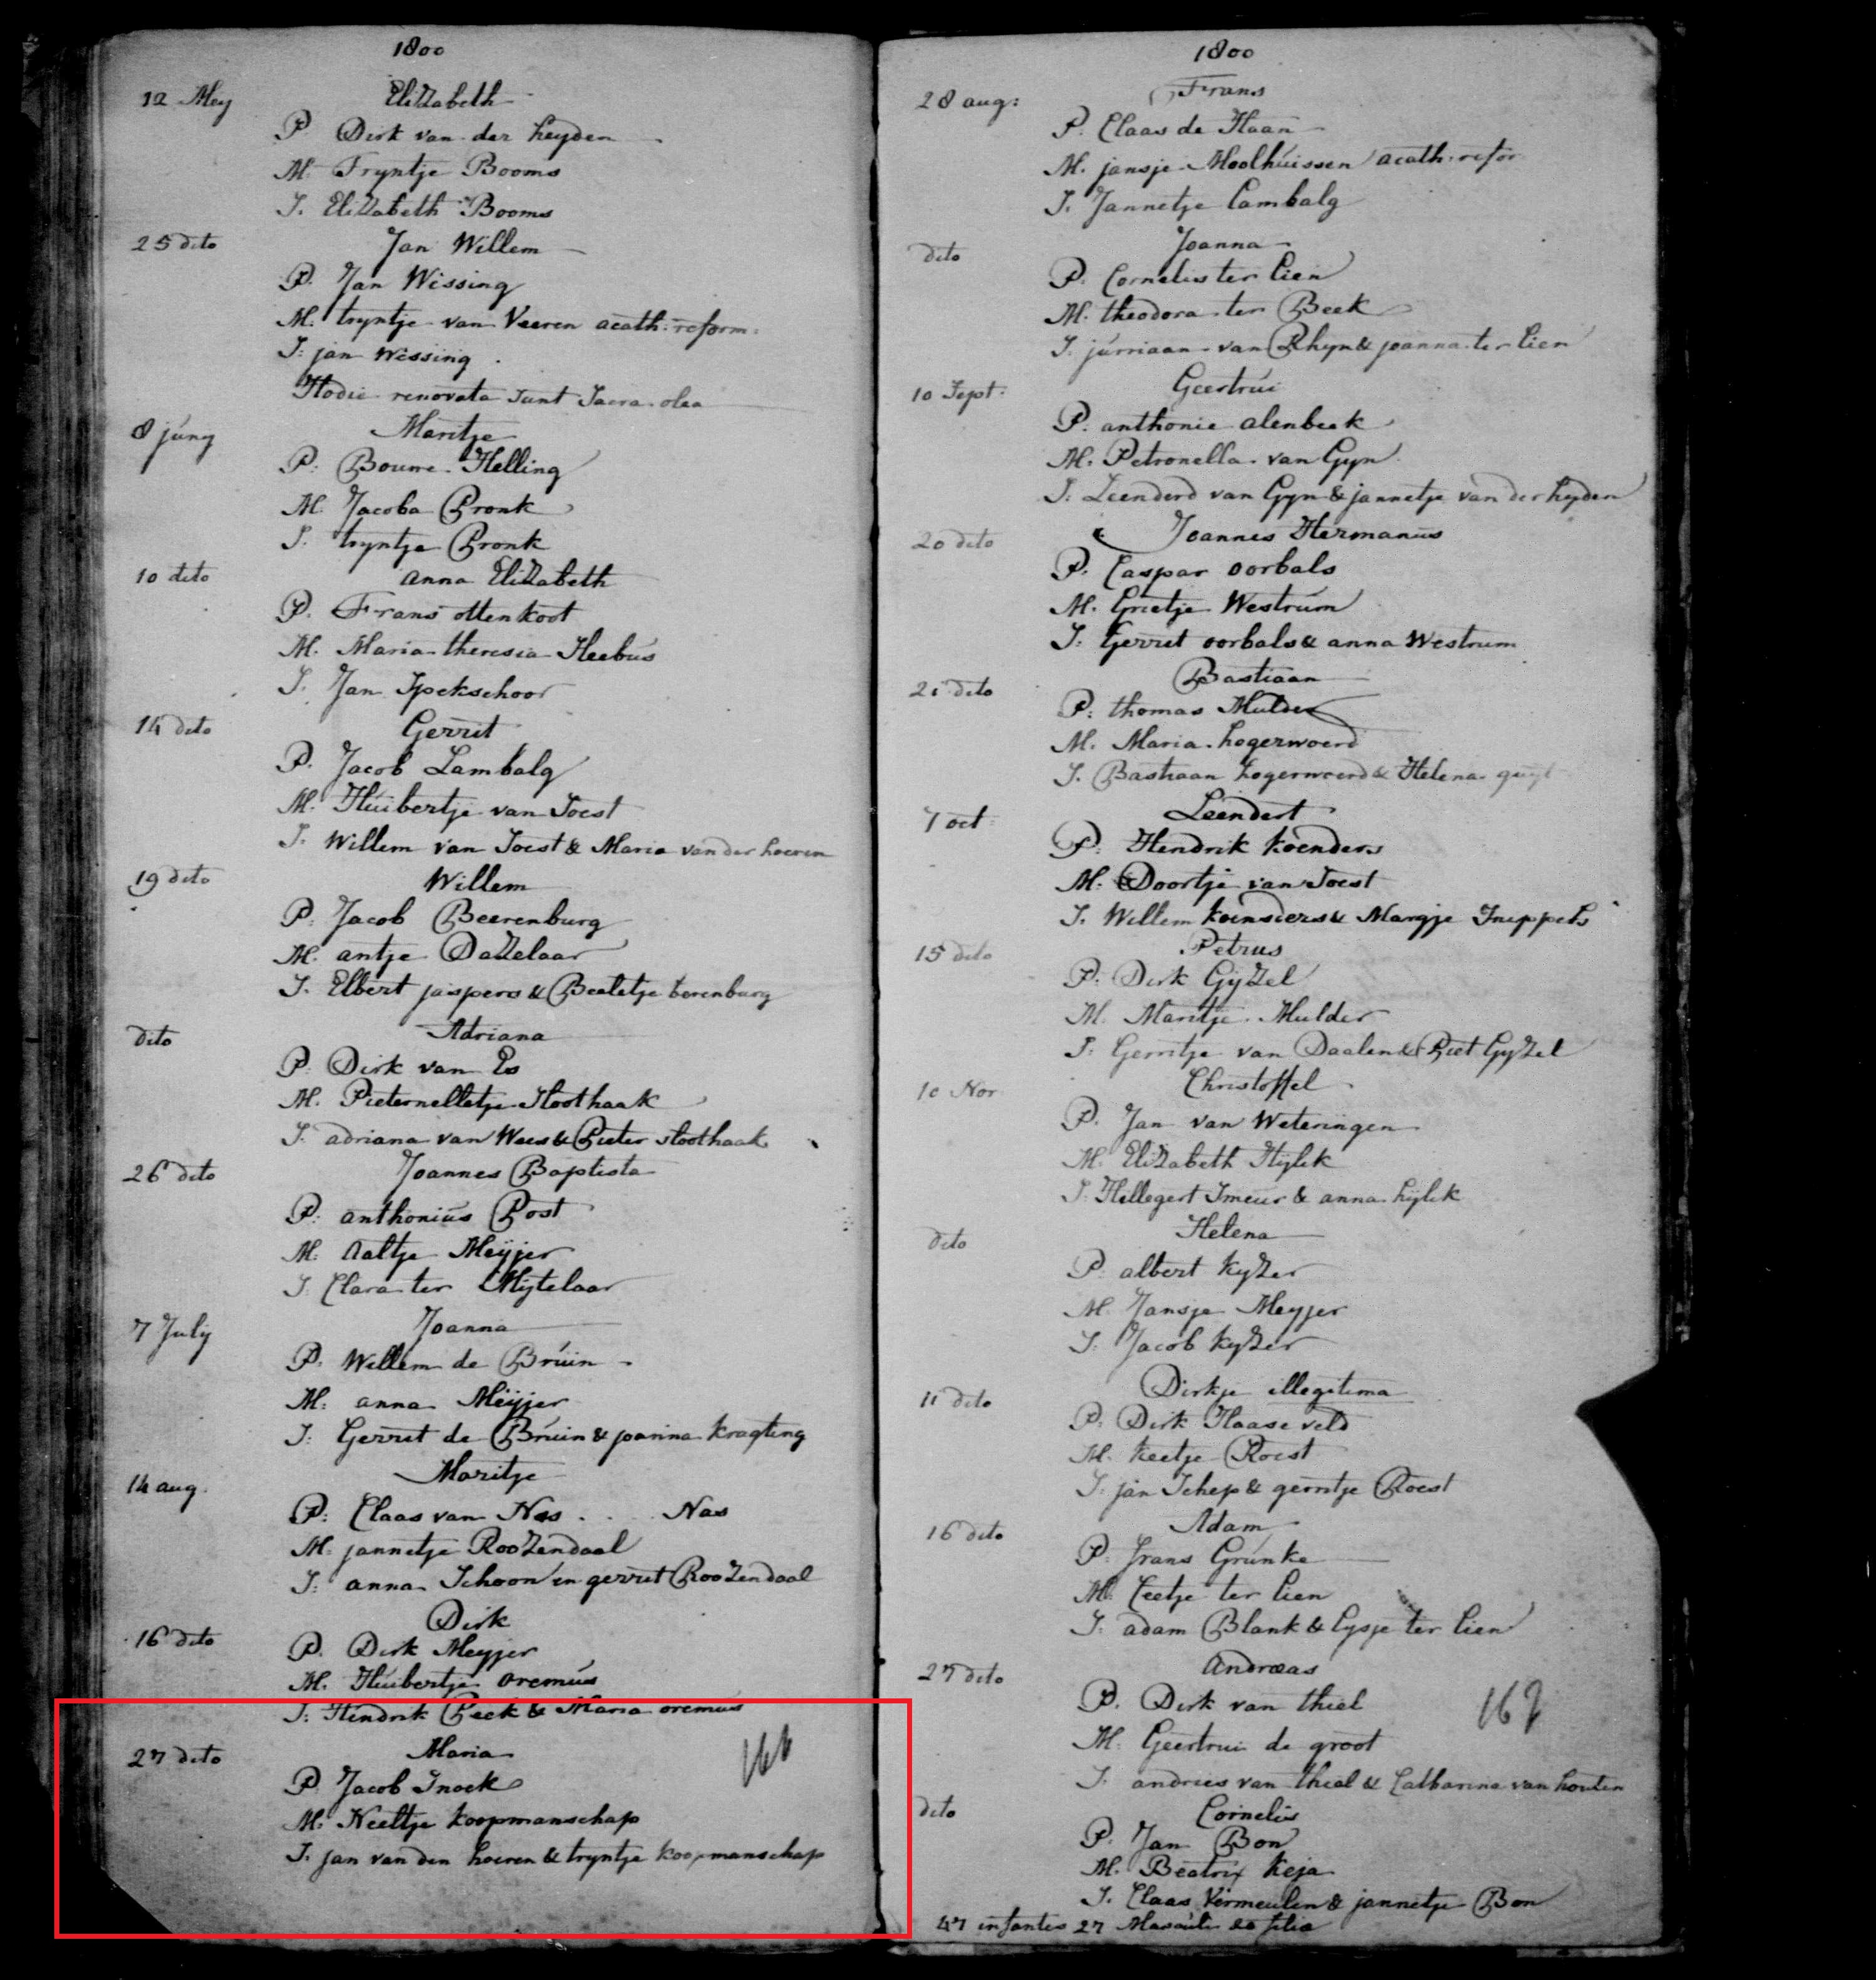 1800
12 Mey Elizabeth
P. Dirk van der heyden
M. Tryntje Booms
S. Elizabeth Booms
25 dito Jan Willem
P. Jan Wissing
M. tryntje van Veeren acath: reform:
S: jan wissing
Hodie renovata sunt Sacra olea
8 juny Maritje
P: Bouwe Helling
M. Jacoba Pronk
S. tryntje Pronk
10 dito anna Elizabeth
P. Frans ottenkoot
M. Maria theresia Heebus
S. Jan Spekschoor
14 dito Gerrit
P. Jacob Lambalg
M. Huibertje van Soest
S. Willem van Soest & Maria van der hoeven
19 dito Willem
P. Jacob Beerenburg
M. antje Dazelaar
S. Elbert jaspers & Beeletje berenburg
dito Adriana
P. Dirk van Es
M. Pieternelletje Stoothaak
S. adriana van Wees & Pieter stoothaak
26 dito Joannes Baptista
P: anthonius Post
M. aaltje Meyjer
S. Clara ter Mijtelaar
7 July Joanna
P. Willem de Bruin
M: anna Meyjer
S: Gerrit de Bruin & joanna kragting
14 aug. Maritje
P: Claas van Nes . . . Nas
M: jannetje Roozendaal
S: anna Schoon en gerrit Roozendaal
16 dito Dirk
P. Dirk Meyjer
M. Huibertje oremus
S: Hendrik Peek & Maria oremus
27 dito Maria
166
P. Jacob Snoek
M: Neeltje koopmanschap
S. jan van den hoeven & tryntje koopmanschap
1800
28 aug: Frans
P. Claas de Haan
M. jansje Moolhuissen acath: refor
S. Jannetje Lambalg
dito Joanna
P. Cornelis ter lien
M. theodora ter Beek
S. jurriaan van Rhyn & joanna ter lien
10 Sept: Geertrui
P. anthonie alenbeek
M. Petronella van Gyn
S: Leenderd van Gyn & jannetje van der heyden
20 dito Joannes Hermanus
P. Caspar oorbals
M. Grietje Westrum
S: Gerrit oorbals & anna Westrum
21 dito Bastiaan
P: thomas Mulder
M. Maria hogerwoerd
S. Bastiaan hogerwoerd & Helena
7 oct: Leendert
P. Hendrik koenders
M. Doortje van Soest
S. Willem koenders & Margje
15 dito Petrus
P. Dirk Gyzel
M. Maritje Mulder
S: Gerritje van Daalen & Piet Gyzel
10 Nov Christoffel
P. Jan van Weteringen
M. Elizabeth Hylek
S: Hellegert Smeur & anna hylek
dito Helena
P. albert kyzer
M. Jansje Meyjer
S: Jacob kyzer
11 dito Dirkje illegitima
P: Dirk Haaseveld
M. keetje Roest
S: jan Schep & gerritje Roest
16 dito Adam
P. frans Grunke
M. Ceetje ter lien
S: adam Blank & lysje ter lien
27 dito Andraeas
P. Dirk van thiel
167
M. Geertrui de groot
S. andries van thiel & Catharina van houten
dito Cornelis
P. Jan Bon
M. Beatrix keja
S. Claas Vermeulen & jannetje Bon
47 infantes 27 Masculi 20 filiae